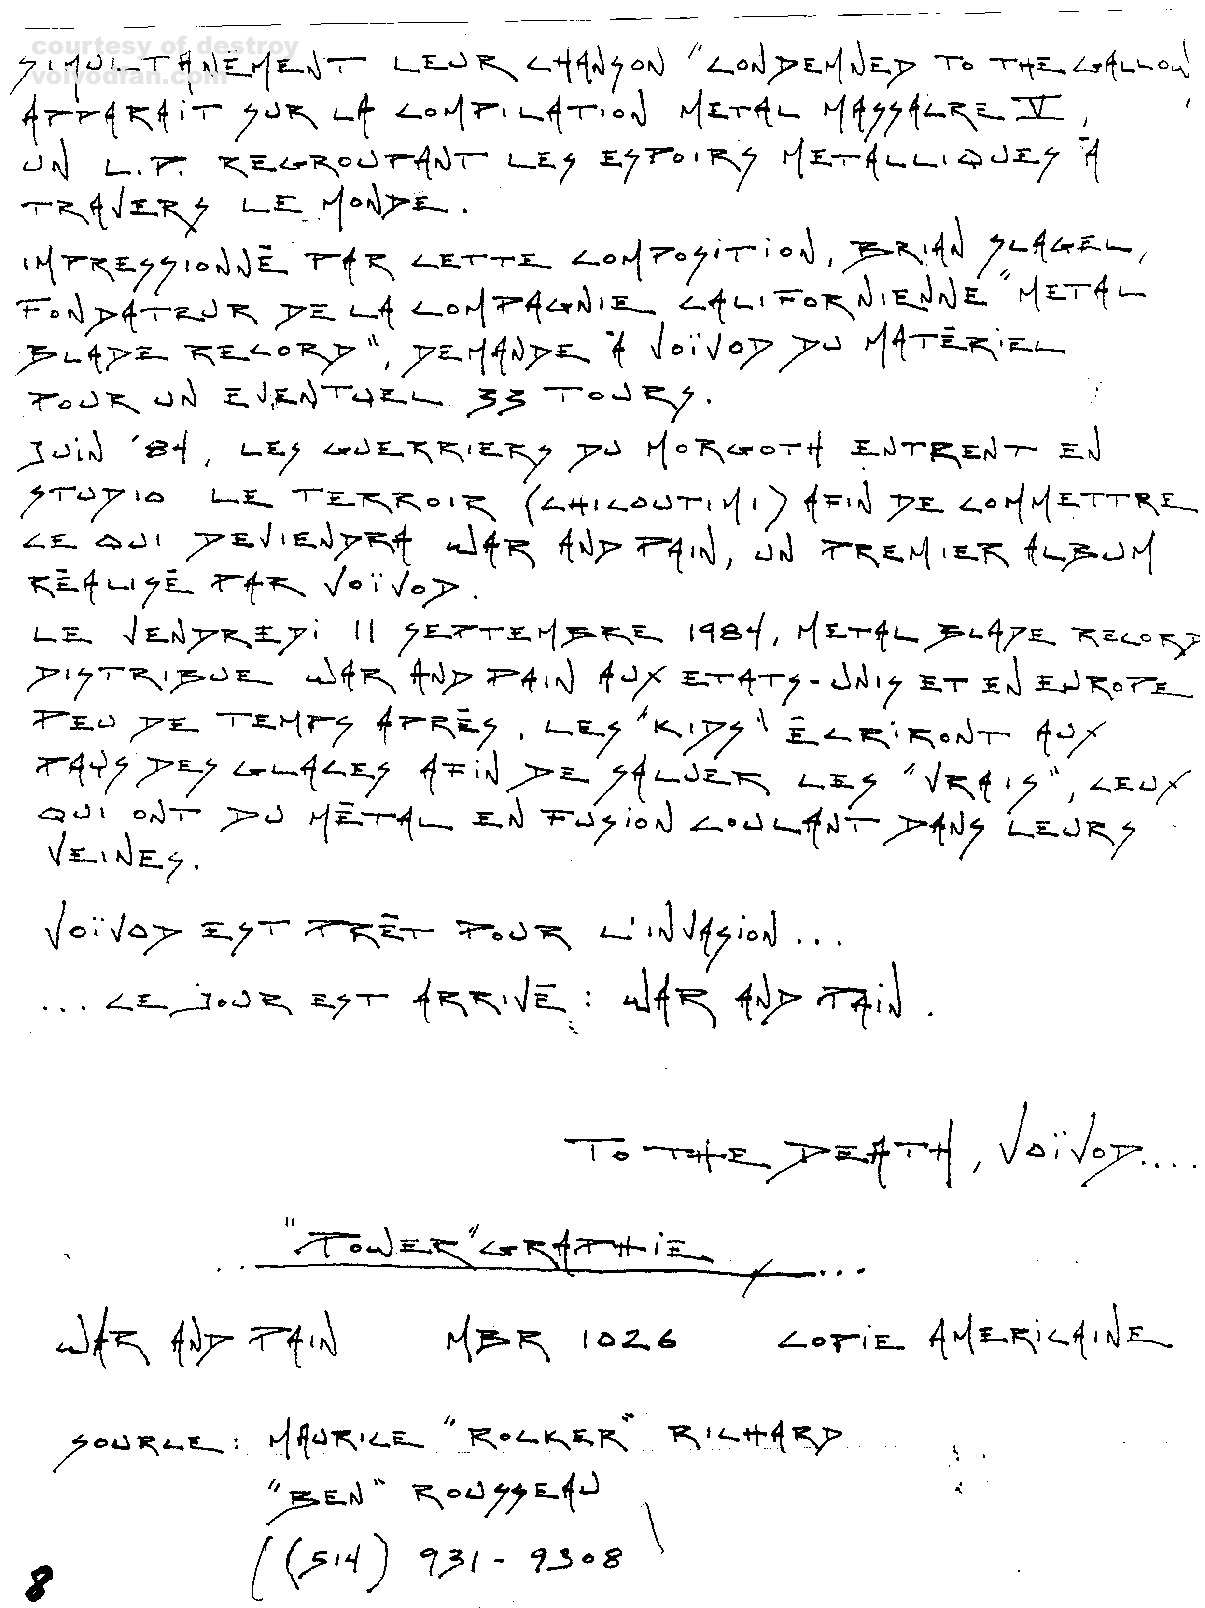 courtesy of destroy
voivodfan.com
SIMULTANÉMENT LEUR CHANSON "CONDEMNED TO THE GALLOW
APPARAIT SUR LA COMPILATION METAL MASSACRE V,
UN L.P. REGROUPANT LES ESPOIRS METALLIQUES À
TRAVERS LE MONDE.
IMPRESSIONNÉ PAR CETTE COMPOSITION, BRIAN SLAGEL,
FONDATEUR DE LA COMPAGNIE CALIFORNIENNE "METAL
BLADE RECORD", DEMANDE À VOÏVOD DU MATÉRIEL
POUR UN EVENTUEL 33 TOURS.
JUIN '84, LES GUERRIERS DU MORGOTH ENTRENT EN
STUDIO LE TERROIR (CHICOUTIMI) AFIN DE COMMETTRE
CE QUI DEVIENDRA WAR AND PAIN, UN PREMIER ALBUM
RÉALISÉ PAR VOÏVOD.
LE VENDREDI 11 SEPTEMBRE 1984, METAL BLADE RECORD
DISTRIBUE WAR AND PAIN AUX ETATS-UNIS ET EN EUROPE
PEU DE TEMPS APRÈS. LES "KIDS" ÉCRIRONT AUX
PAYS DES GLACES AFIN DE SALUER LES "VRAIS", CEUX
QUI ONT DU MÉTAL EN FUSION COULANT DANS LEURS
VEINES.
VOÏVOD EST PRÊT POUR L'INVASION...
... CE JOUR EST ARRIVÉ : WAR AND PAIN.
TO THE DEATH, VOÏVOD....
"TOWER" GRAPHIE
WAR AND PAIN MBR 1026 COPIE AMERICAINE
SOURCE : MAURICE "ROCKER" RICHARD
"BEN" ROUSSEAU
((514) 931-9308
8